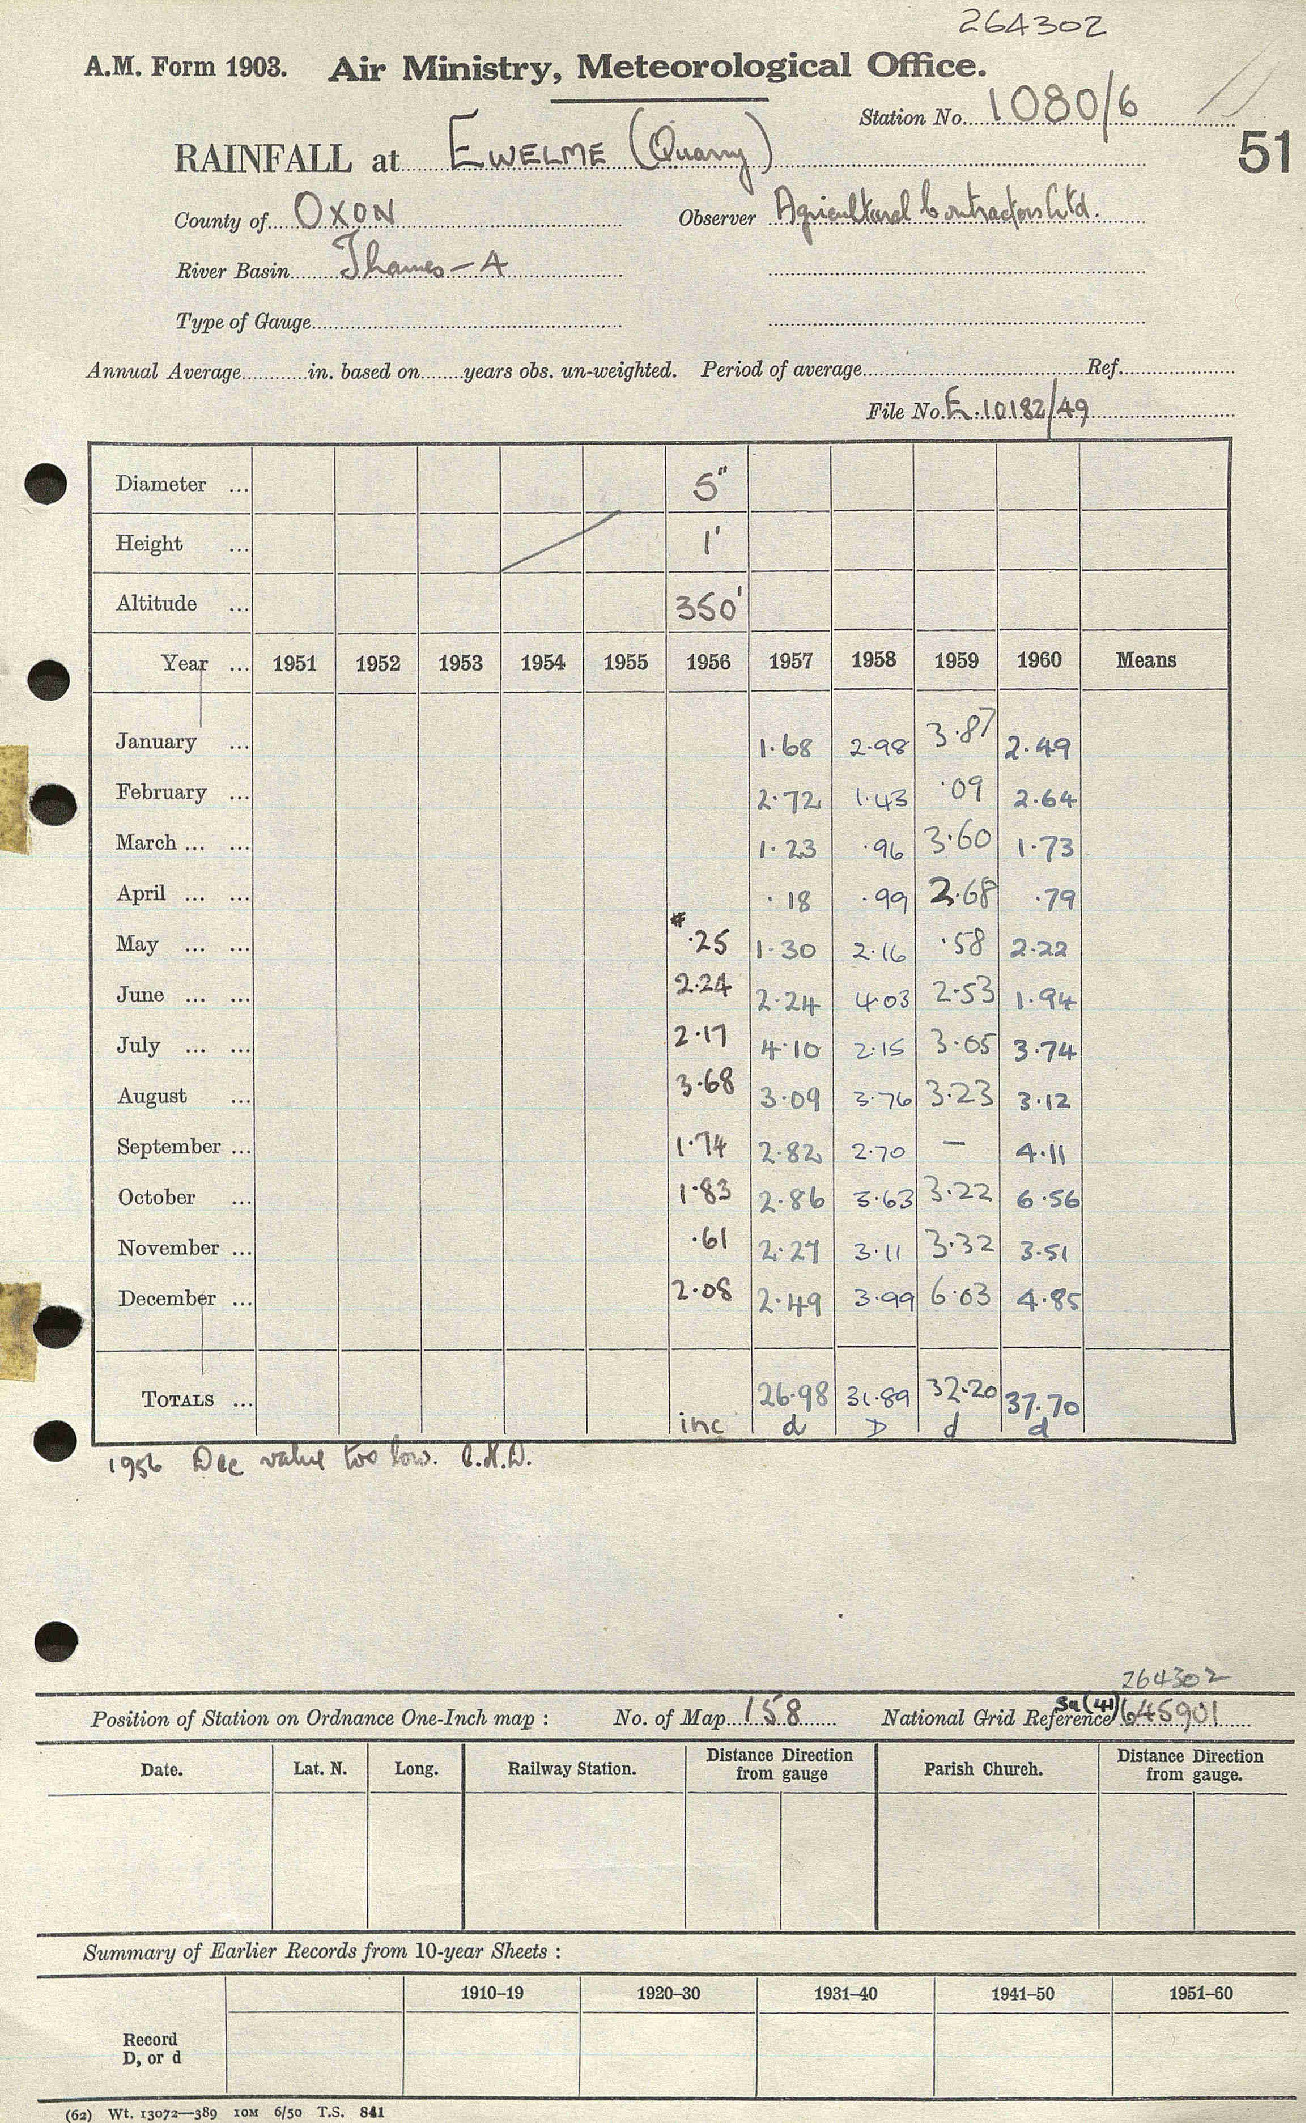 264302
A.M. Form 1903. Air Ministry, Meteorological Office.
Station No. 1080/6
51
RAINFALL at EWELME (Quarry)
County of OXON Observer Agricultural Contractors Ltd.
River Basin Thames-A
Type of Gauge
Annual Average in. based on years obs. un-weighted. Period of average Ref.
File No. E.10182/49
Diameter ... 5"
Height ... 1'
Altitude ... 350'
Year ... 1951 1952 1953 1954 1955 1956 1957 1958 1959 1960 Means
January ... 1.68 2.98 3.87 2.49
February ... 2.72 1.43 .09 2.64
March ... ... 1.23 .96 3.60 1.73
April ... ... .18 .99 2.68 .79
May ... ... * .25 1.30 2.16 .58 2.22
June ... ... 2.24 2.24 4.03 2.53 1.94
July ... ... 2.17 4.10 2.15 3.05 3.74
August ... 3.68 3.09 3.76 3.23 3.12
September ... 1.74 2.82 2.70 — 4.11
October ... 1.83 2.86 3.63 3.22 6.56
November ... .61 2.27 3.11 3.32 3.51
December ... 2.08 2.49 3.99 6.03 4.85
TOTALS ... inc 26.98 d 31.89 D 32.20 d 37.70 d
1956 Dec value too low.
264302
Position of Station on Ordnance One-Inch map : No. of Map 158 National Grid Reference Sq (41) 645901
Date. Lat. N. Long. Railway Station. Distance Direction from gauge Parish Church. Distance Direction from gauge.
Summary of Earlier Records from 10-year Sheets :
1910–19 1920–30 1931–40 1941–50 1951–60
Record
D, or d
(62) Wt. 13072—389 10M 6/50 T.S. 841